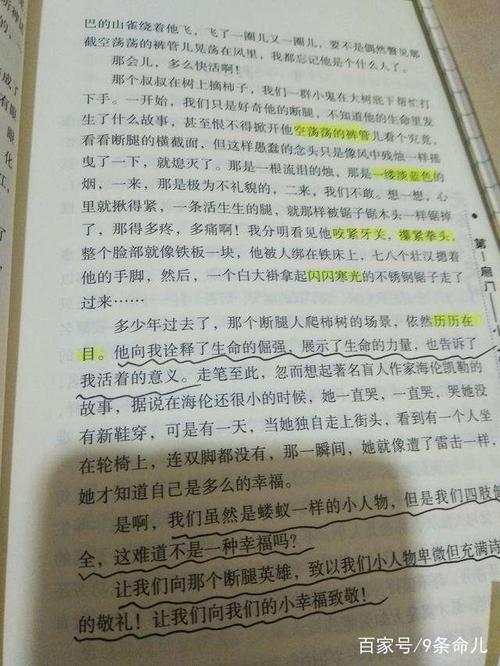 巴的山雀绕着他飞，飞了一圈儿又一圈儿，要不是偶然瞥见那
截空荡荡的裤管儿晃荡在风里，我都忘记他是个什么人了。
那会儿，多么快活啊！
那个叔叔在树上摘柿子，我们一群小鬼在大树底下帮忙打
下手。一开始，我们只是好奇他的断腿，不知道他的生命里发
生了什么故事，甚至恨不得掀开他空荡荡的裤管儿看个究竟，
看看断腿的横截面，但这样愚蠢的念头只是像风中残烛一样摇
曳了一下，就熄灭了。那是一根流泪的烛，那是一缕淡蓝色的
烟，一来，那是极为不礼貌的，二来，我们不敢。想一想，心
里就揪得紧，一条活生生的腿，就那样被锯子锯木头一样锯掉
了，那得多疼，多痛啊！我分明看见他咬紧牙关，攥紧拳头，
整个脸部就像铁板一块，他被人绑在铁床上，七八个壮汉摁着
他的手脚，然后，一个白大褂拿起闪闪寒光的不锈钢锯子走了
过来……
多少年过去了，那个断腿人爬柿树的场景，依然历历在
目。他向我诠释了生命的倔强，展示了生命的力量，也告诉了
我活着的意义。走笔至此，忽而想起著名盲人作家海伦凯勒的
故事，据说在海伦还很小的时候，她一直哭，一直哭，哭她没
有新鞋穿，可是有一天，当她独自走上街头，看到有一个人坐
在轮椅上，连双脚都没有，那一瞬间，她就像遭了雷击一样，
她才知道自己是多么的幸福。
是啊，我们虽然是蝼蚁一样的小人物，但是我们四肢健
全，这难道不是一种幸福吗？
让我们向那个断腿英雄，致以我们小人物卑微但充满诗
的敬礼！让我们向我们的小幸福致敬！
第一扇门
百家号/9条命儿